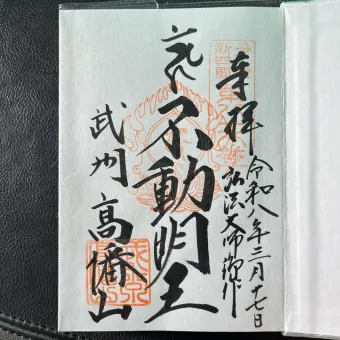 奉拝
令和八年三月十七日
弘法大師御作
不動明王
武州 高幡山